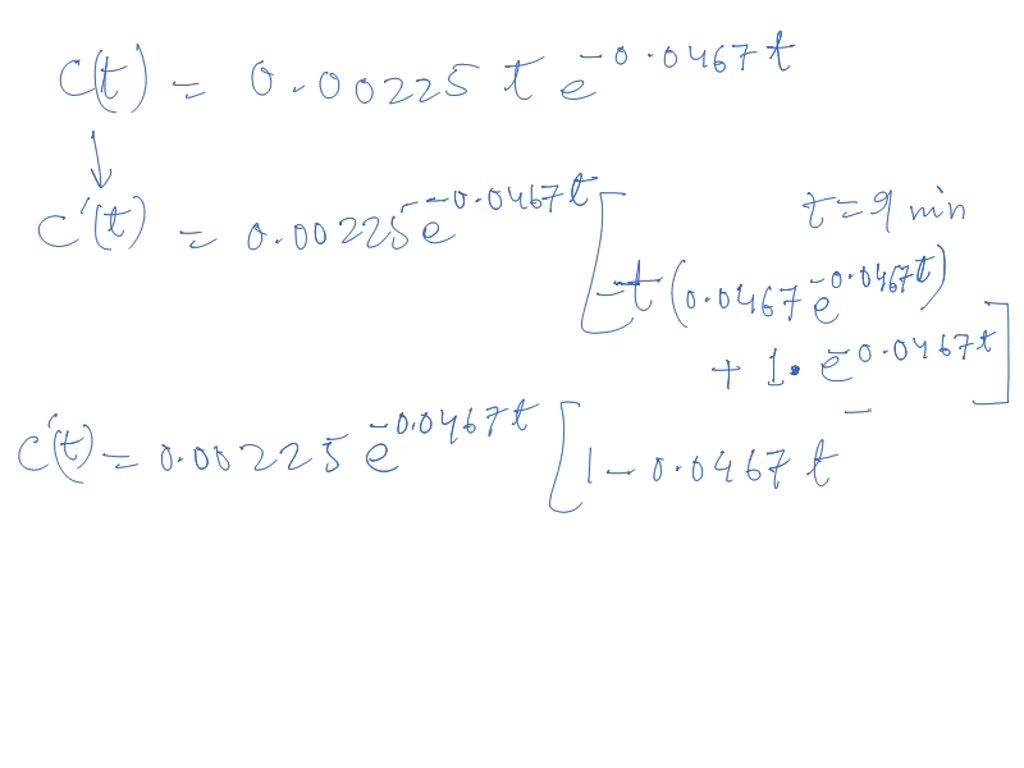 C(t) = 0.00225 t e^{-0.0467t}
↓
C'(t) = 0.00225 e^{-0.0467t} [
t = 9 min
-t (0.0467 e^{-0.0467t})
+ 1 · e^{-0.0467t} ]
C'(t) = 0.00225 e^{-0.0467t} [ 1 - 0.0467 t